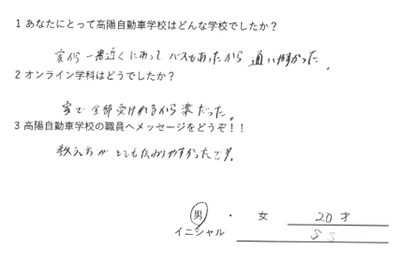 1 あなたにとって高陽自動車学校はどんな学校でしたか？
家から一番近くにあってバスもあったから通い易かった。
2 オンライン学科はどうでしたか？
家で全部受けれるから楽だった。
3 高陽自動車学校の職員へメッセージをどうぞ！！
教え方がとても分かりやすかったです。
男 ・ 女 20才
イニシャル S S